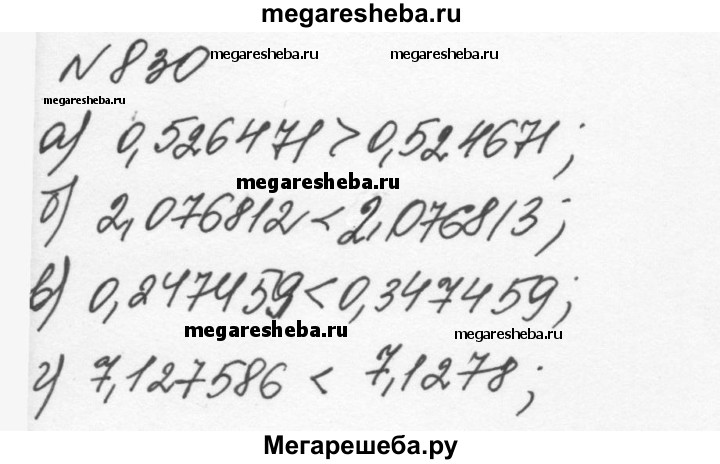 megaresheba.ru
N 830
megaresheba.ru megaresheba.ru
megaresheba.ru
а) 0,526471 > 0,524671;
megaresheba.ru
б) 2,076812 < 2,076813;
в) 0,247459 < 0,347459;
megaresheba.ru megaresheba.ru
г) 7,127586 < 7,1278;
Мегарешеба.ру